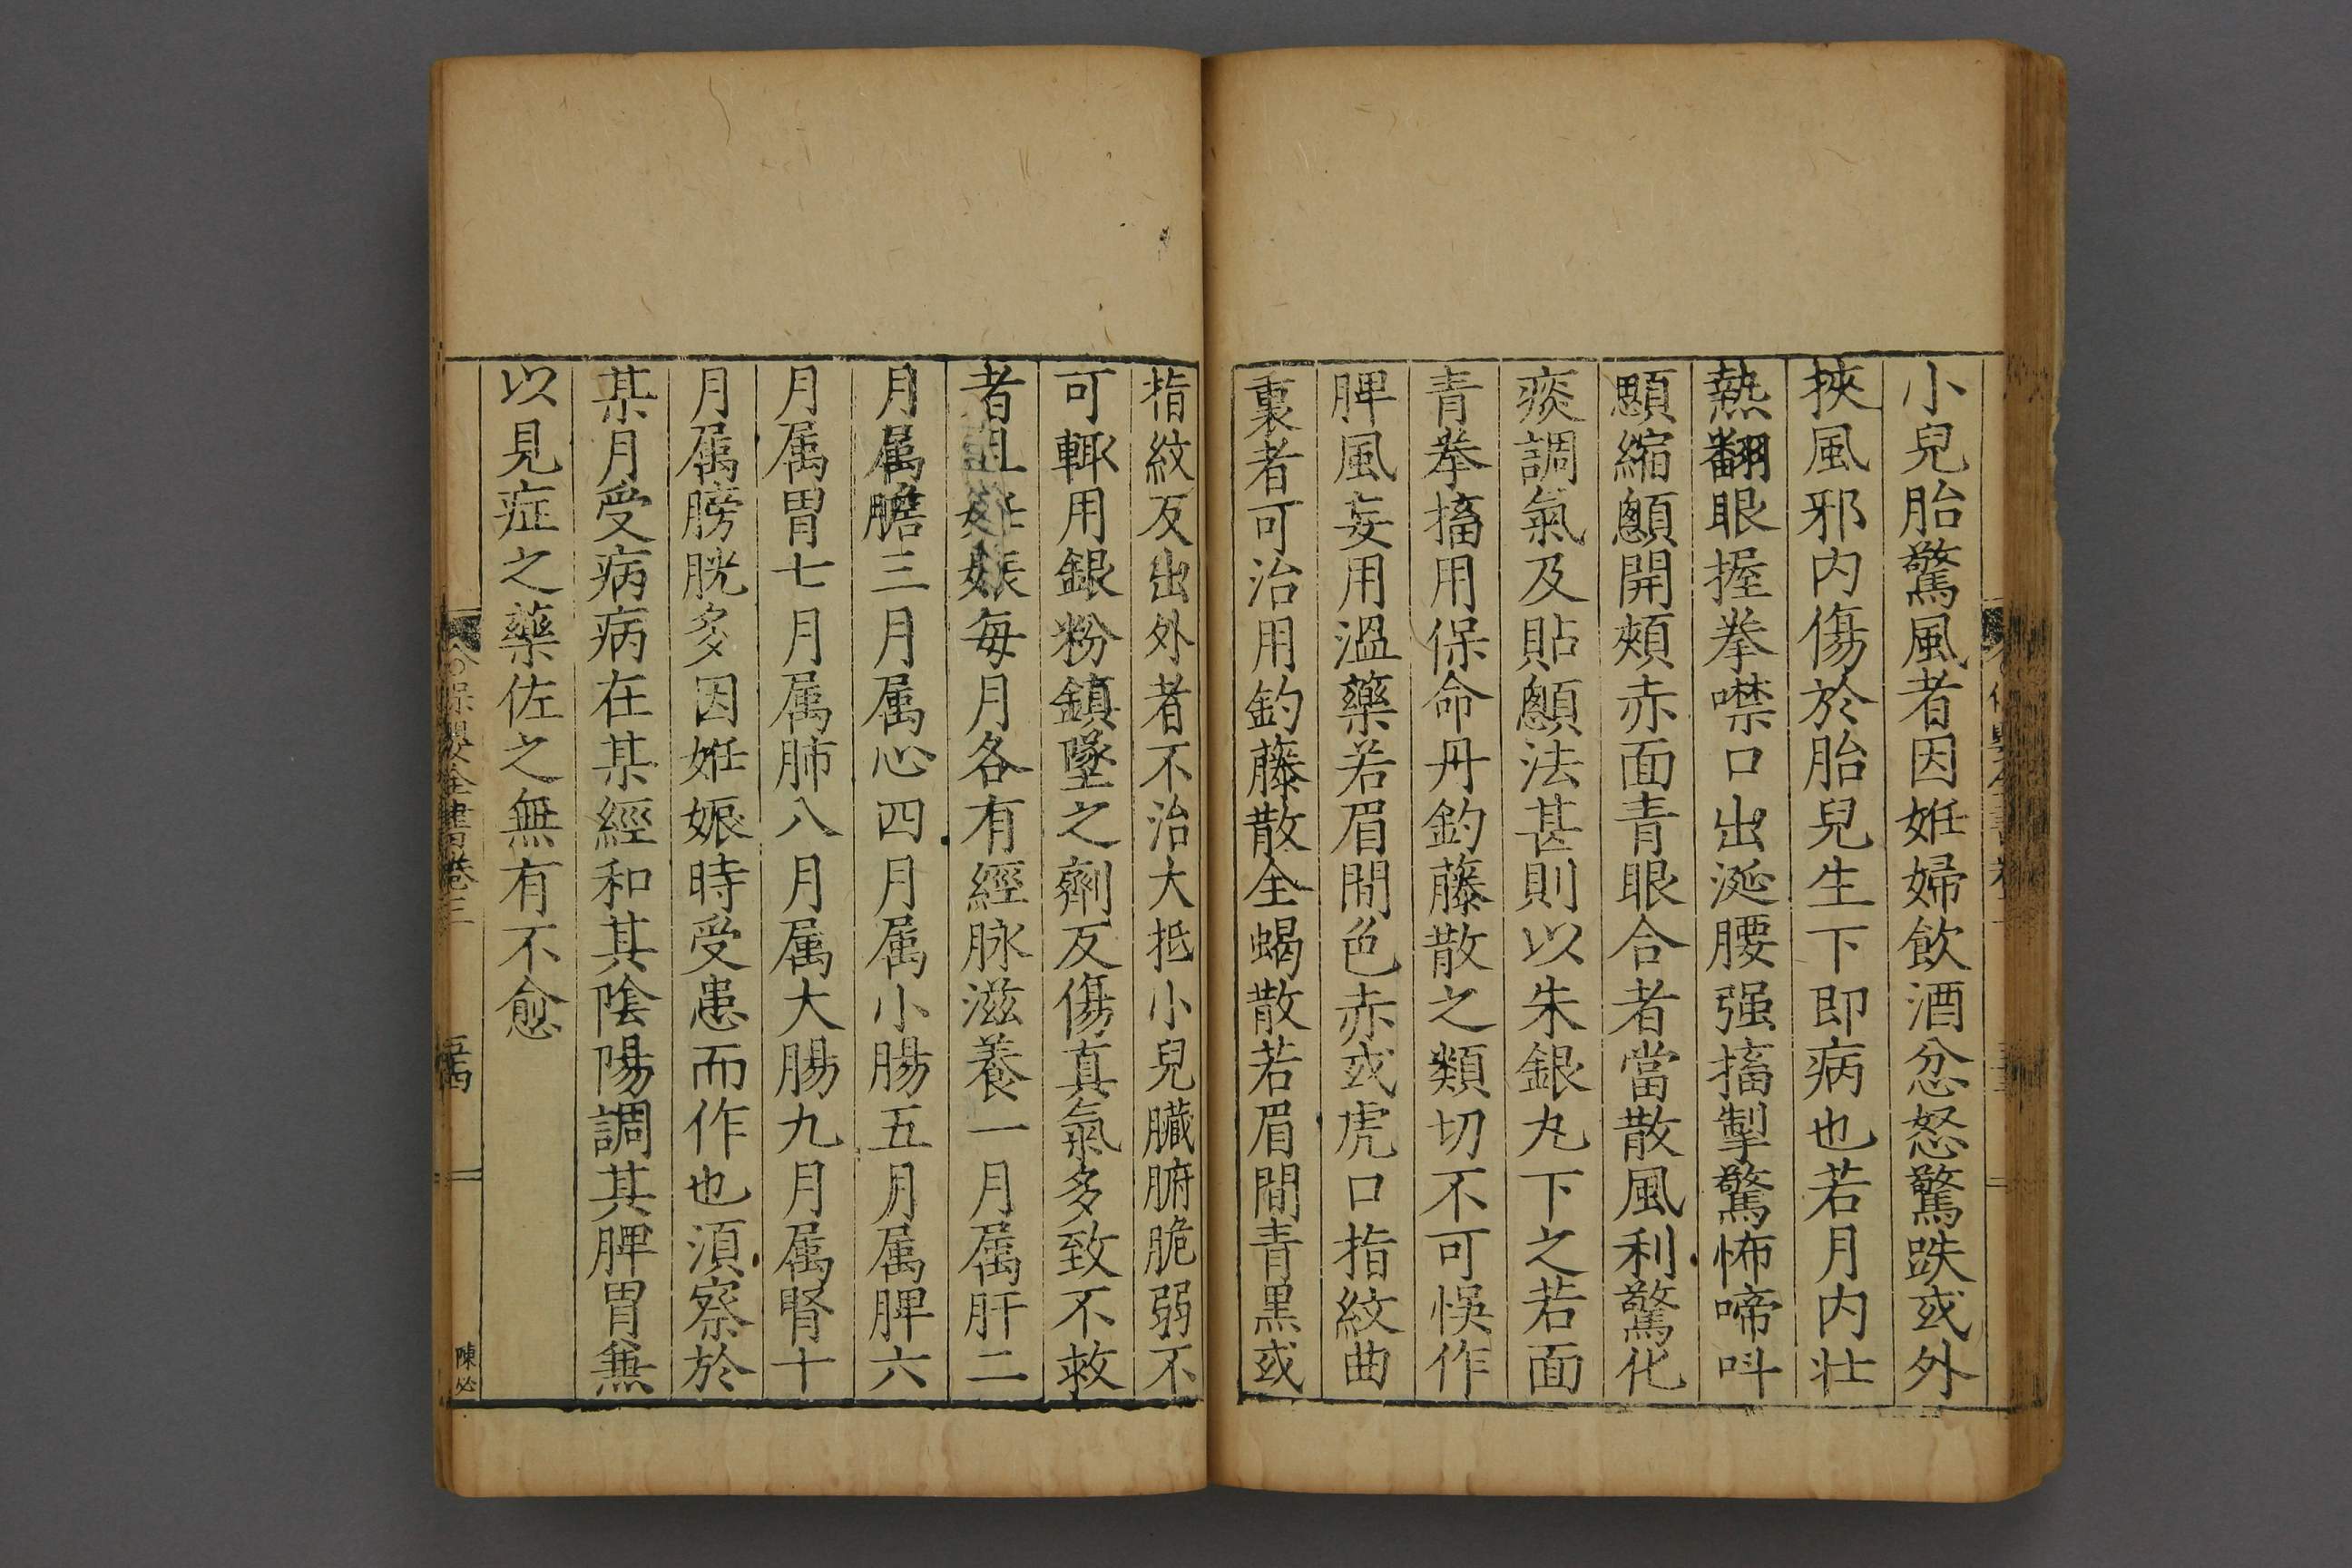 小兒胎驚風者因姙婦飲酒忿怒驚跌或外
挾風邪内傷於胎兒生下即病也若月内壯
熱翻眼握拳噤口出涎腰强搐掣驚怖啼呌
顋縮顖開頰赤面青眼合者當散風利驚化
痰調氣及貼顖法甚則以朱銀丸下之若面
青拳搐用保命丹釣藤散之類切不可悞作
脾風妄用溫藥若眉間色赤或虎口指紋曲
裏者可治用釣藤散全蝎散若眉間青黒或
指紋反出外者不治大抵小兒臟腑脆弱不
可輙用銀粉鎮墜之劑反傷真氣多致不救
者且姙娠每月各有經脉滋養一月属肝二
月属膽三月属心四月属小腸五月属脾六
月属胃七月属肺八月属大腸九月属腎十
月属膀胱多因姙娠時受患而作也湏察於
某月受病病在某經和其陰陽調其脾胃兼
以見症之藥佐之無有不愈
保嬰全書卷三
陳必